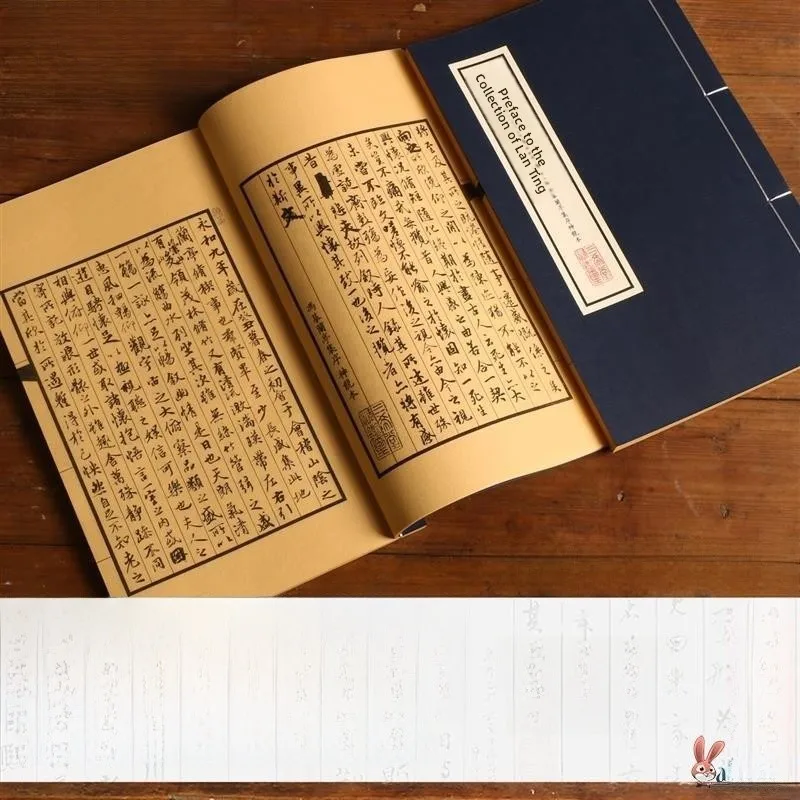 永和九年歲在癸丑暮春之初會于會稽山陰之
蘭亭脩稧事也羣賢畢至少長咸集此地
有崇山峻領茂林脩竹又有清流激湍暎帶左右引
以為流觴曲水列坐其次雖無絲竹管弦之盛
一觴一詠亦足以暢敘幽情是日也天朗氣清
惠風和暢仰觀宇宙之大俯察品類之盛所以
遊目騁懷足以極視聽之娛信可樂也夫人之
相與俯仰一世或取諸懷抱悟言一室之內或因
寄所託放浪形骸之外雖趣舍萬殊靜躁不同
當其欣於所遇蹔得於己怏然自足不知老之
將至及其所之既惓情隨事遷感慨係之矣
向之所欣俛仰之間以為陳迹猶不能不以之
興懷況脩短隨化終期於盡古人云死生亦大
矣豈不痛哉每攬昔人興感之由若合一契
未嘗不臨文嗟悼不能喻之於懷固知一死生
為虛誕齊彭殤為妄作後之視今亦由今之視
昔悲夫故列敘時人錄其所述雖世殊
事異所以興懷其致一也後之攬者亦將有感
於斯文
馮摹蘭亭集序神龍本
Preface to the
Collection of Lan Ting
蘭亭集序神龍本